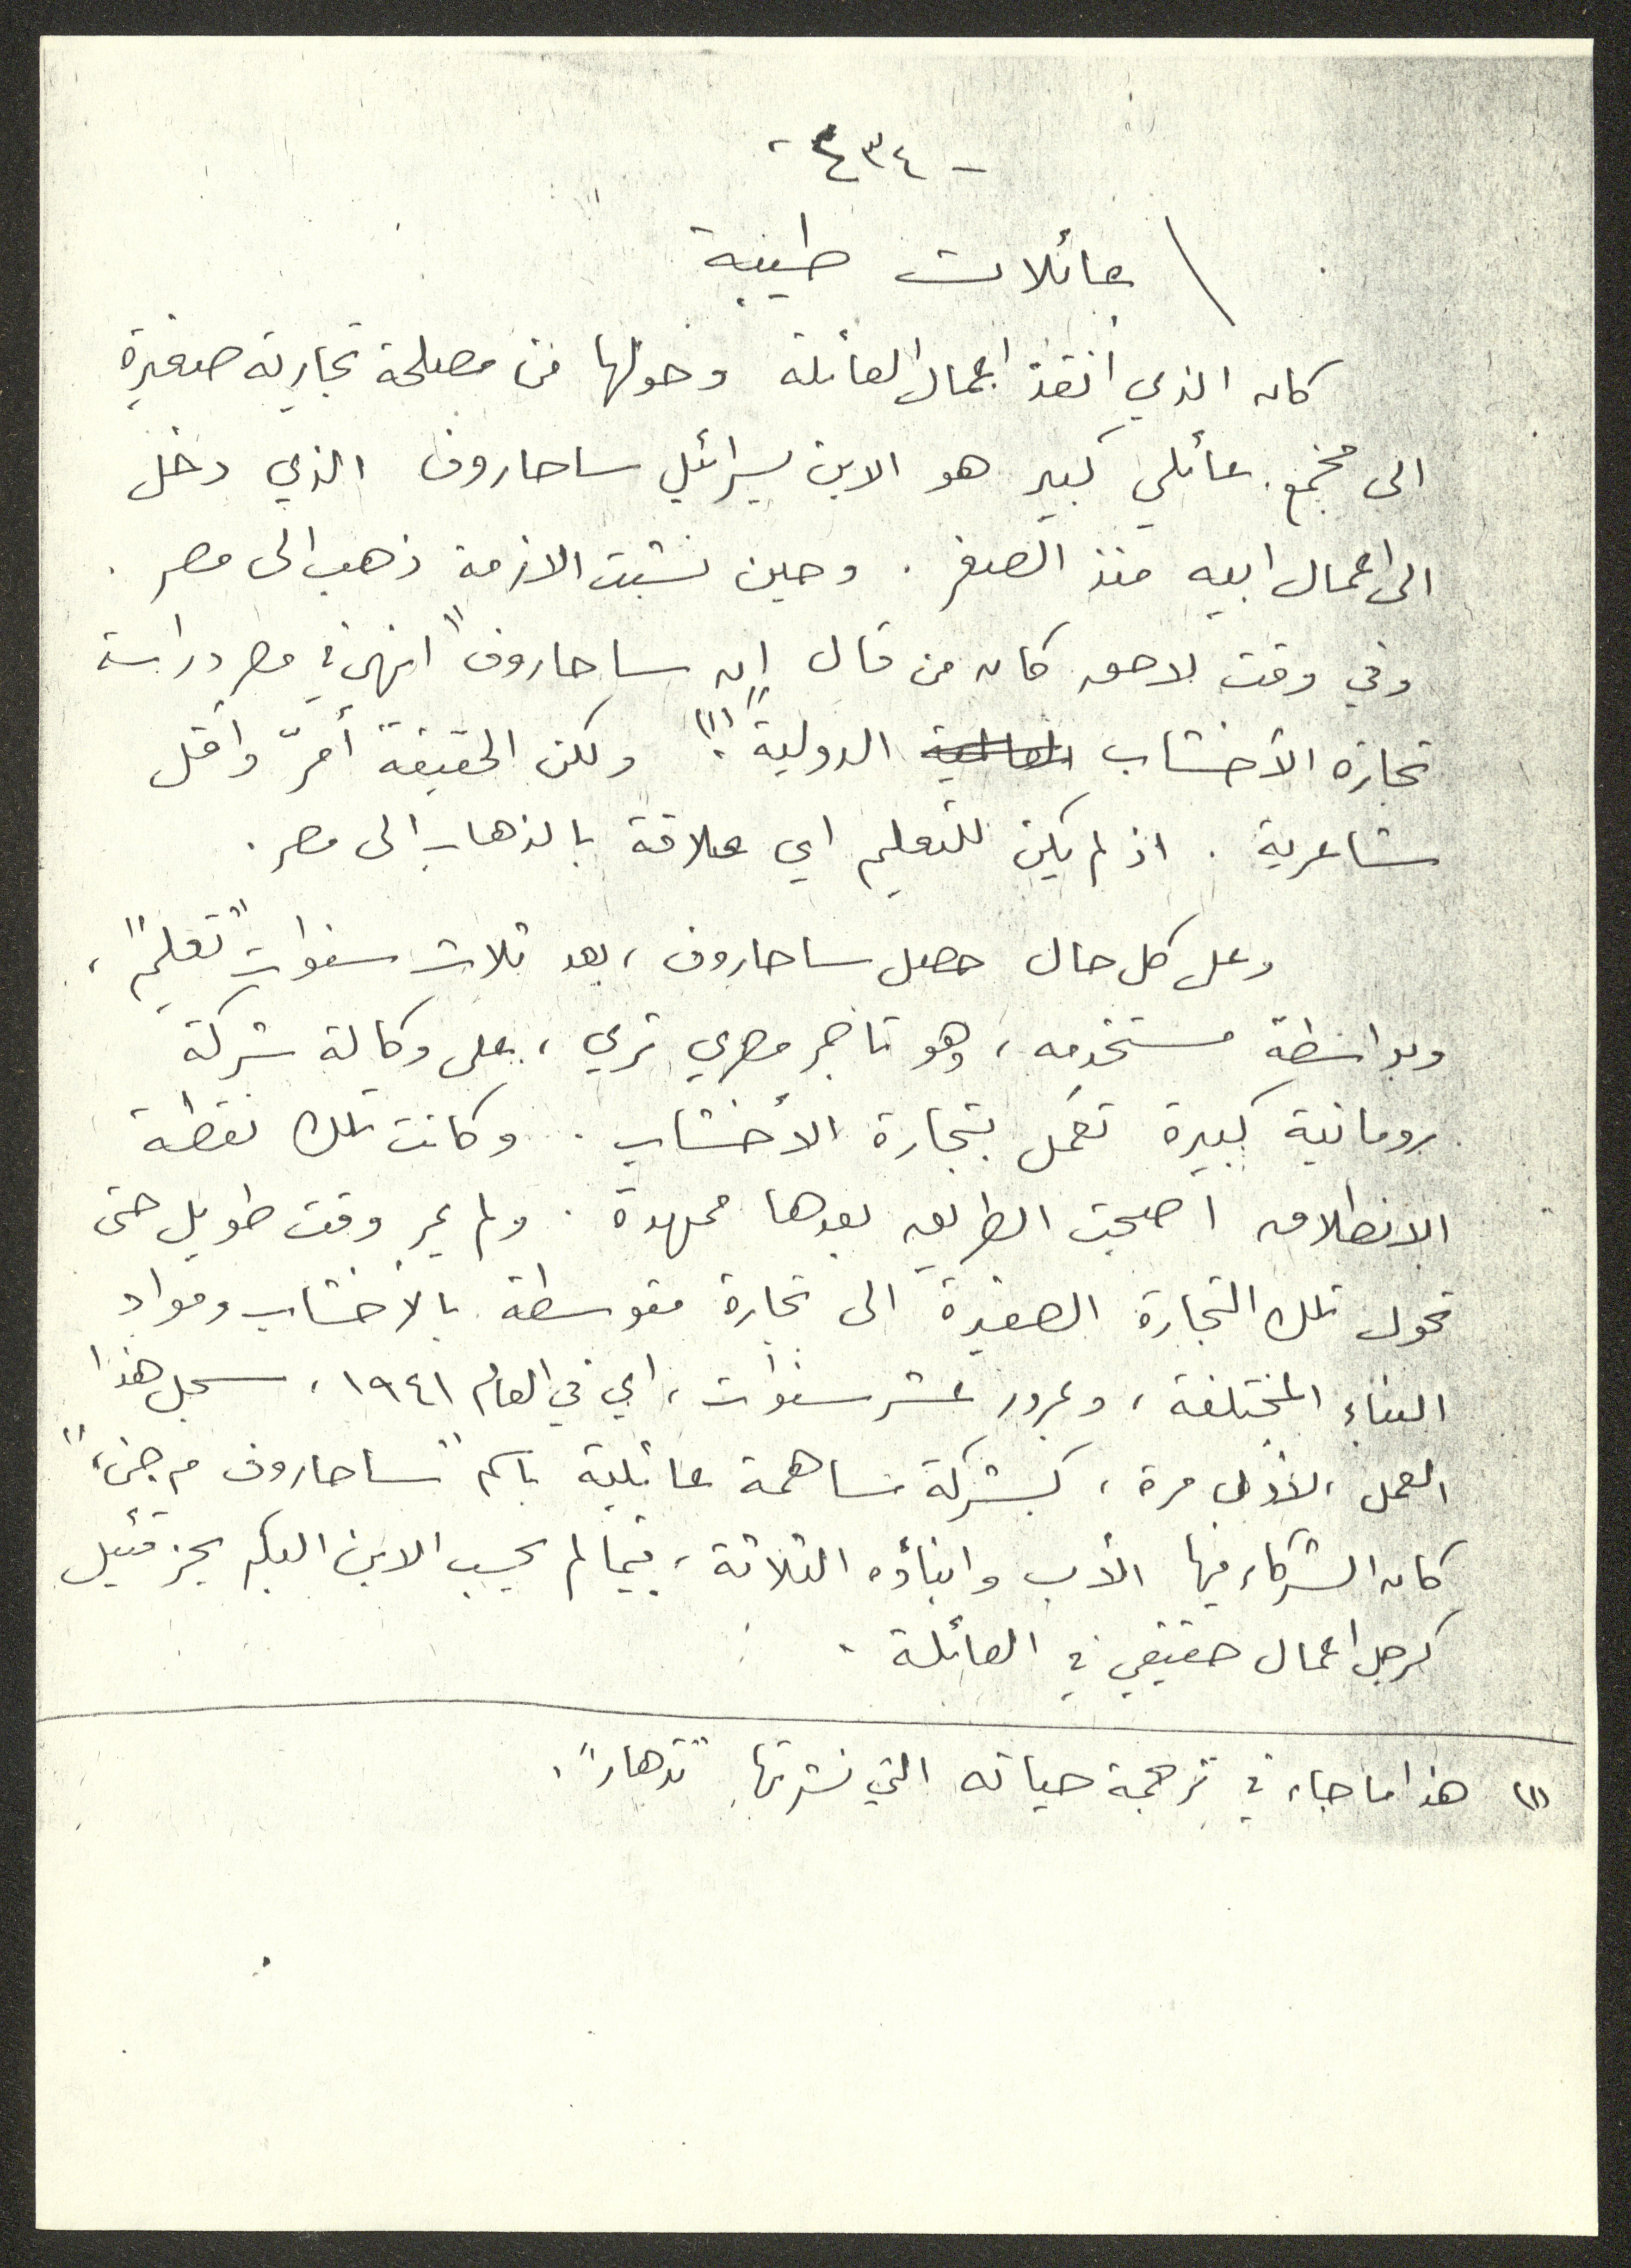 - ٤٣٤ -
عائلات طيبة
كان الذي أنقذ اعمال العائلة وحولها من مصلحة تجارية صغيرة
الى مجمع عائلي كبير هو الابن يسرائيل ساحاروف الذي دخل
الى اعمال ابيه منذ الصغر . وحين نشبت الازمة ذهب الى مصر .
وفي وقت لاحق كان من قال إن ساحاروف "انهى في مصر دراسة
تجارة الأخشاب الدولية"(١). ولكن الحقيقة أمرّ وأقل
شاعرية . اذ لم يكن للتعليم اي علاقة بالذهاب الى مصر .
وعلى كل حال حصل ساحاروف ، بعد ثلاث سنوات "تعليم" ،
وبواسطة مستخدمه ، وهو تاجر مصري ثري ، على وكالة شركة
رومانية كبيرة تعمل بتجارة الأخشاب . وكانت تلك نقطة
الانطلاق اصبحت الطريق بعدها ممهدة . ولم يمر وقت طويل حتى
تحول تلك التجارة الصغيرة الى تجارة متوسطة بالأخشاب ومواد
البناء المختلفة ، وبمرور عشر سنوات ، اي في العام ١٩٤١ ، سجل هذا
العمل ، لأول مرة ، كشركة مساهمة عائلية باسم "ساحاروف م.ض" ،
كان الشركاء فيها الأب وابناؤه الثلاثة ، فيما لم يحسب الابن البكر يحزقئيل
كرجل اعمال حقيقي في العائلة .
(١) هذا ما جاء في ترجمة حياته التي نشرتها "تدهار" .